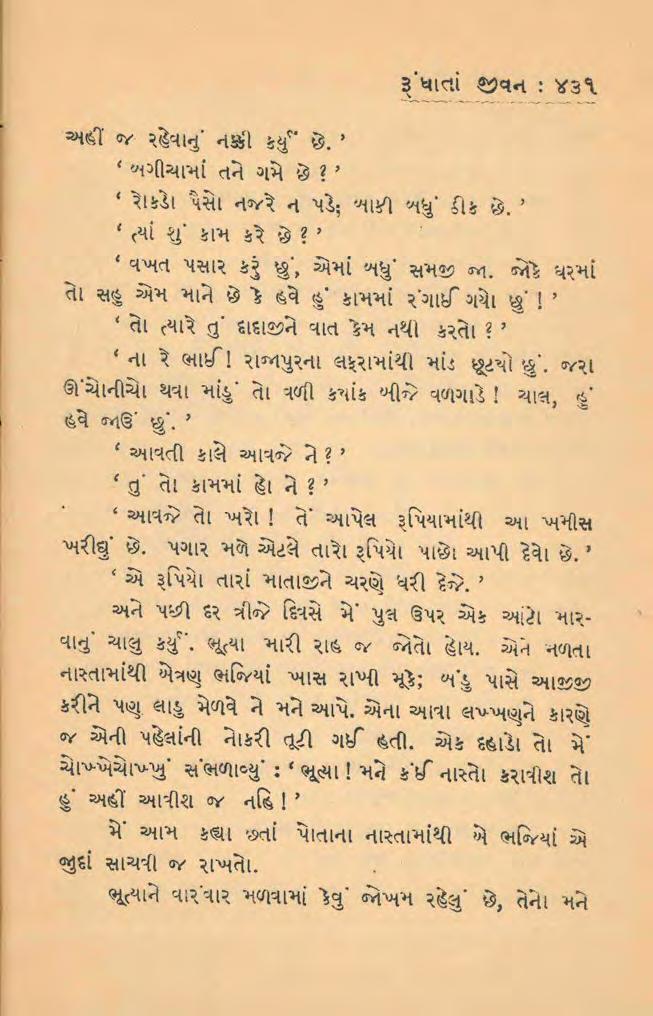 રૂંધાતાં જીવન : ૪૩૧
અહીં જ રહેવાનું નક્કી કર્યું છે. ’
‘ બગીચામાં તને ગમે છે ? ’
‘ રોકડો પૈસો નજરે ન પડે; બાકી બધું ઠીક છે. ’
‘ ત્યાં શું કામ કરે છે ? ’
‘ વખત પસાર કરું છું, એમાં બધું સમજી જા. જોકે ઘરમાં
તો સહુ એમ માને છે કે હવે હું કામમાં રંગાઈ ગયો છું ! ’
‘ તો ત્યારે તું દાદાજીને વાત કેમ નથી કરતો ? ’
‘ ના રે ભાઈ ! રાજાપુરના લફરામાંથી માંડ છૂટયો છું. જરા
ઊંચોનીચો થવા માંડું તો વળી કયાંક બીજે વળગાડે ! ચાલ, હું
હવે જાઉં છું. ’
‘ આવતી કાલે આવજે ને ? ’
‘ તું તો કામમાં હો ને ? ’
‘ આવજે તો ખરો ! તેં આપેલ રૂપિયામાંથી આ ખમીસ
ખરીદ્યું છે. પગાર મળે એટલે તારો રૂપિયો પાછો આપી દેવો છે. ’
‘ એ રૂપિયો તારાં માતાજીને ચરણે ધરી દેજે. ’
અને પછી દર ત્રીજે દિવસે મેં પુલ ઉપર એક આંટો માર-
વાનું ચાલુ કર્યું. ભૂત્યા મારી રાહ જ જોતો હોય. એને મળતા
નાસ્તામાંથી બેત્રણ ભજિયાં ખાસ રાખી મૂકે; બંડુ પાસે આજીજી
કરીને પણ લાડુ મેળવે ને મને આપે. એના આવા લખ્ખણને કારણે
જ એની પહેલાંની નોકરી તૂટી ગઈ હતી. એક દહાડો તો મેં
ચોખ્ખેચોખ્ખું સંભળાવ્યું : ‘ ભૂત્યા ! મને કંઈ નાસ્તો કરાવીશ તો
હું અહીં આવીશ જ નહિ ! ’
મેં આમ કહ્યા છતાં પોતાના નાસ્તામાંથી બે ભજિયાં એ
જુદાં સાચવી જ રાખતો.
ભૂત્યાને વારંવાર મળવામાં કેવું જોખમ રહેલું છે, તેનો મને